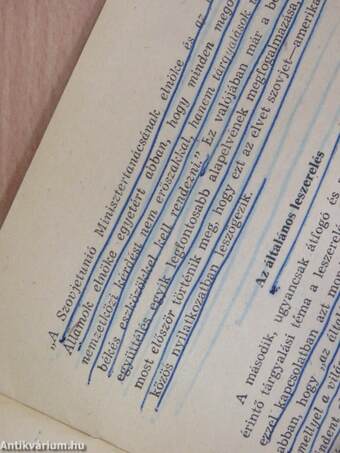 „A Szovjetunió Minisztertanácsának elnöke és az
Államok elnöke egyetért abban, hogy minden
nemzetközi kérdést nem erőszakkal, hanem tárgyalások
békés eszközökkel kell rendezni." Ez valójában már a
együttélés egyik legfontosabb alapelvének megfogalmazása,
most először történik meg, hogy ezt az elvet szovjet—amerikai
közös nyilatkozatban leszögezik.
Az általános leszerelés
A második, ugyancsak átfogó és
érintő tárgyalási téma a leszerelés
ezzel kapcsolatban azt
abban, hogy „az
mellyel a
Antikvarium.hu
Antikvárium.hu